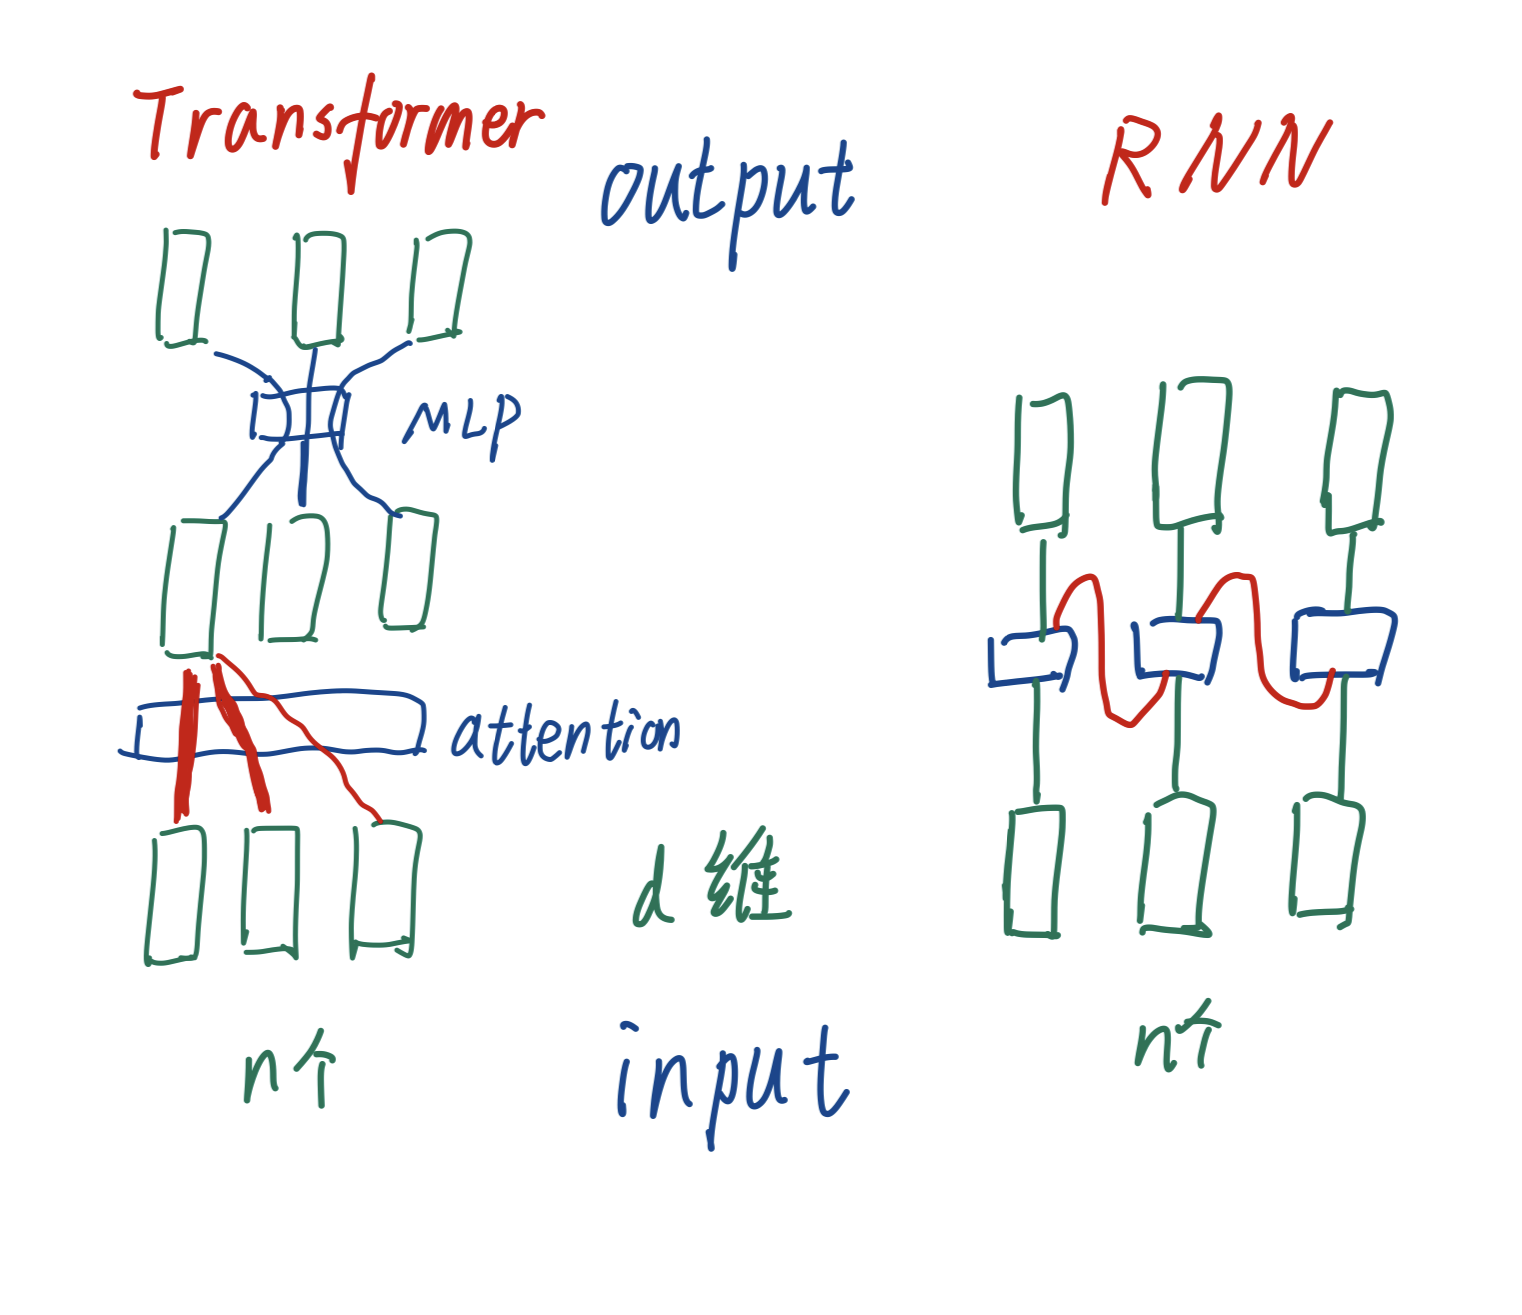 Transformer
output
RNN
MLP
attention
d维
n个
input
n个